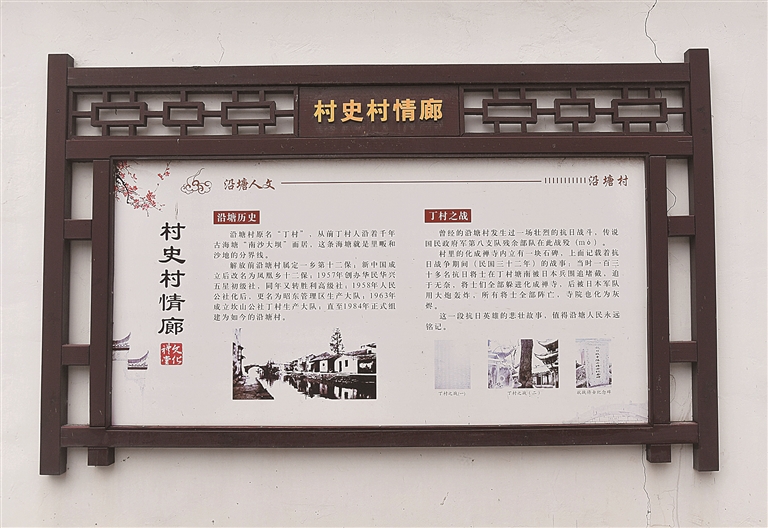 村史村情廊
沿塘人文
沿塘村
村史村情廊
文化礼堂
沿塘历史
沿塘村原名“丁村”，从前丁村人沿着千年
古海塘“南沙大坝”而居，这条海塘就是里畈和
沙地的分界线。
解放前沿塘村属定一乡第十二保，新中国成
立后改名为凤凰乡十二保；1957年创办华民华兴
五星初级社，同年又转胜利高级社；1958年人民
公社化后，更名为昭东管理区生产大队；1963年
成立坎山公社丁村生产大队；直至1984年正式组
建为如今的沿塘村。
丁村之战
曾经的沿塘村发生过一场壮烈的抗日战斗，传说
国民政府军第八支队残余部队在此战殁（mò）。
村里的化成禅寺内立有一块石碑，上面记载着抗
日战争期间（民国三十二年）的战事：当时一百三
十多名抗日将士在丁村塘南被日本兵围追堵截，迫
于无奈，将士们全部躲进化成禅寺，后被日本军队
用大炮轰炸，所有将士全部阵亡，寺院也化为灰
烬。
这一段抗日英雄的悲壮故事，值得沿塘人民永远
铭记。
丁村之战(一)
丁村之战(二)